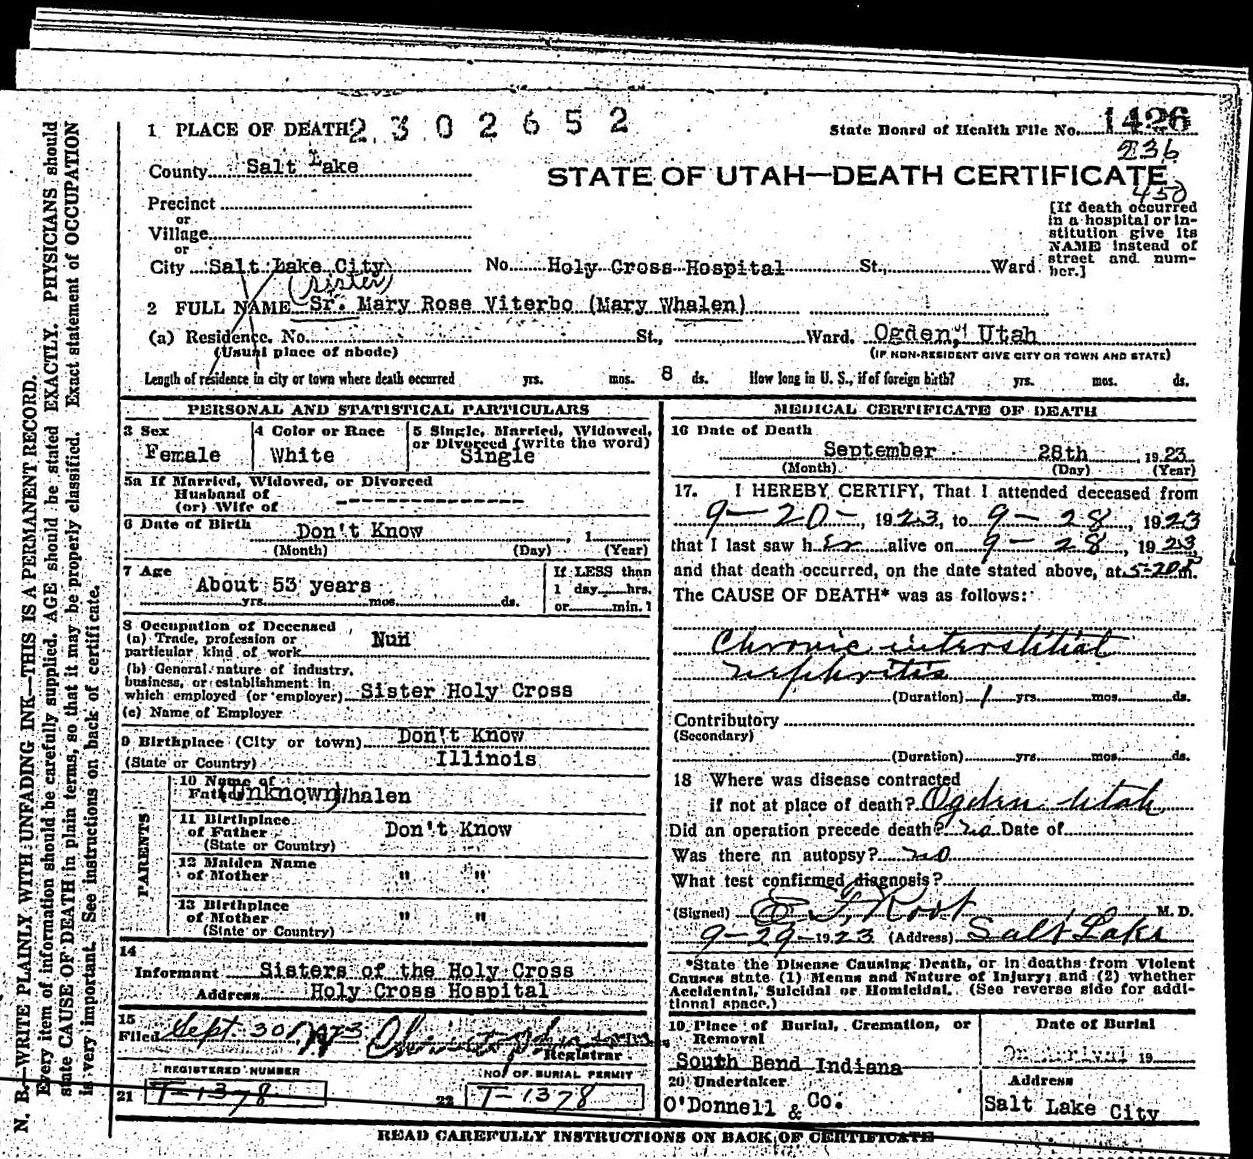 1 PLACE OF DEATH 2302652
State Board of Health File No. 1426
236
County Salt Lake
STATE OF UTAH—DEATH CERTIFICATE
450
Precinct
or
Village
or
City Salt Lake City No. Holy Cross Hospital St., Ward
[If death occurred
in a hospital or in-
stitution give its
NAME instead of
street and num-
ber.]
(Sister)
2 FULL NAME Sr. Mary Rose Viterbo (Mary Whalen)
(a) Residence. No. St., Ward. Ogden, Utah
(Usual place of abode) (IF NON-RESIDENT GIVE CITY OR TOWN AND STATE)
Length of residence in city or town where death occurred yrs. mos. 8 ds. How long in U. S., if of foreign birth? yrs. mos. ds.
PERSONAL AND STATISTICAL PARTICULARS
3 Sex
Female
4 Color or Race
White
5 Single, Married, Widowed,
or Divorced (write the word)
Single
5a If Married, Widowed, or Divorced
Husband of
(or) Wife of
6 Date of Birth Don't Know , 1
(Month) (Day) (Year)
7 Age
About 53 years
yrs. mos. ds.
If LESS than
1 day hrs.
or min. ?
8 Occupation of Deceased
(a) Trade, profession or
particular kind of work Nun
(b) General nature of industry,
business, or establishment in
which employed (or employer) Sister Holy Cross
(c) Name of Employer
9 Birthplace (City or town) Don't Know
(State or Country) Illinois
PARENTS
10 Name of
Father (Unknown) Whalen
11 Birthplace
of Father
(State or Country)
Don't Know
12 Maiden Name
of Mother " "
13 Birthplace
of Mother " "
(State or Country)
14
Informant Sisters of the Holy Cross
Address Holy Cross Hospital
15
Filed Sept. 30, 1923
Registrar
REGISTERED NUMBER
21 T-1378
NO. OF BURIAL PERMIT
22 T-1378
MEDICAL CERTIFICATE OF DEATH
16 Date of Death
September 28th 1923
(Month) (Day) (Year)
17. I HEREBY CERTIFY, That I attended deceased from
9-20-, 1923, to 9-28, 1923
that I last saw her alive on 9-28, 1923
and that death occurred, on the date stated above, at 5-20 P m.
The CAUSE OF DEATH* was as follows:
Chronic interstitial
nephritis
(Duration) 1 yrs. mos. ds.
Contributory
(Secondary)
(Duration) yrs. mos. ds.
18 Where was disease contracted
if not at place of death? Ogden Utah
Did an operation precede death? no Date of
Was there an autopsy? no
What test confirmed diagnosis?
(Signed) E F Root M. D.
9-29-1923 (Address) Salt Lake
*State the Disease Causing Death, or in deaths from Violent
Causes state (1) Means and Nature of Injury; and (2) whether
Accidental, Suicidal or Homicidal. (See reverse side for addi-
tional space.)
19 Place of Burial, Cremation, or
Removal
South Bend Indiana
Date of Burial
On Arrival 19
20 Undertaker
O'Donnell & Co.
Address
Salt Lake City
READ CAREFULLY INSTRUCTIONS ON BACK OF CERTIFICATE
N. B.—WRITE PLAINLY WITH UNFADING INK—THIS IS A PERMANENT RECORD.
Every item of information should be carefully supplied. AGE should be stated EXACTLY. PHYSICIANS should
state CAUSE OF DEATH in plain terms, so that it may be properly classified. Exact statement of OCCUPATION
is very important. See instructions on back of certificate.